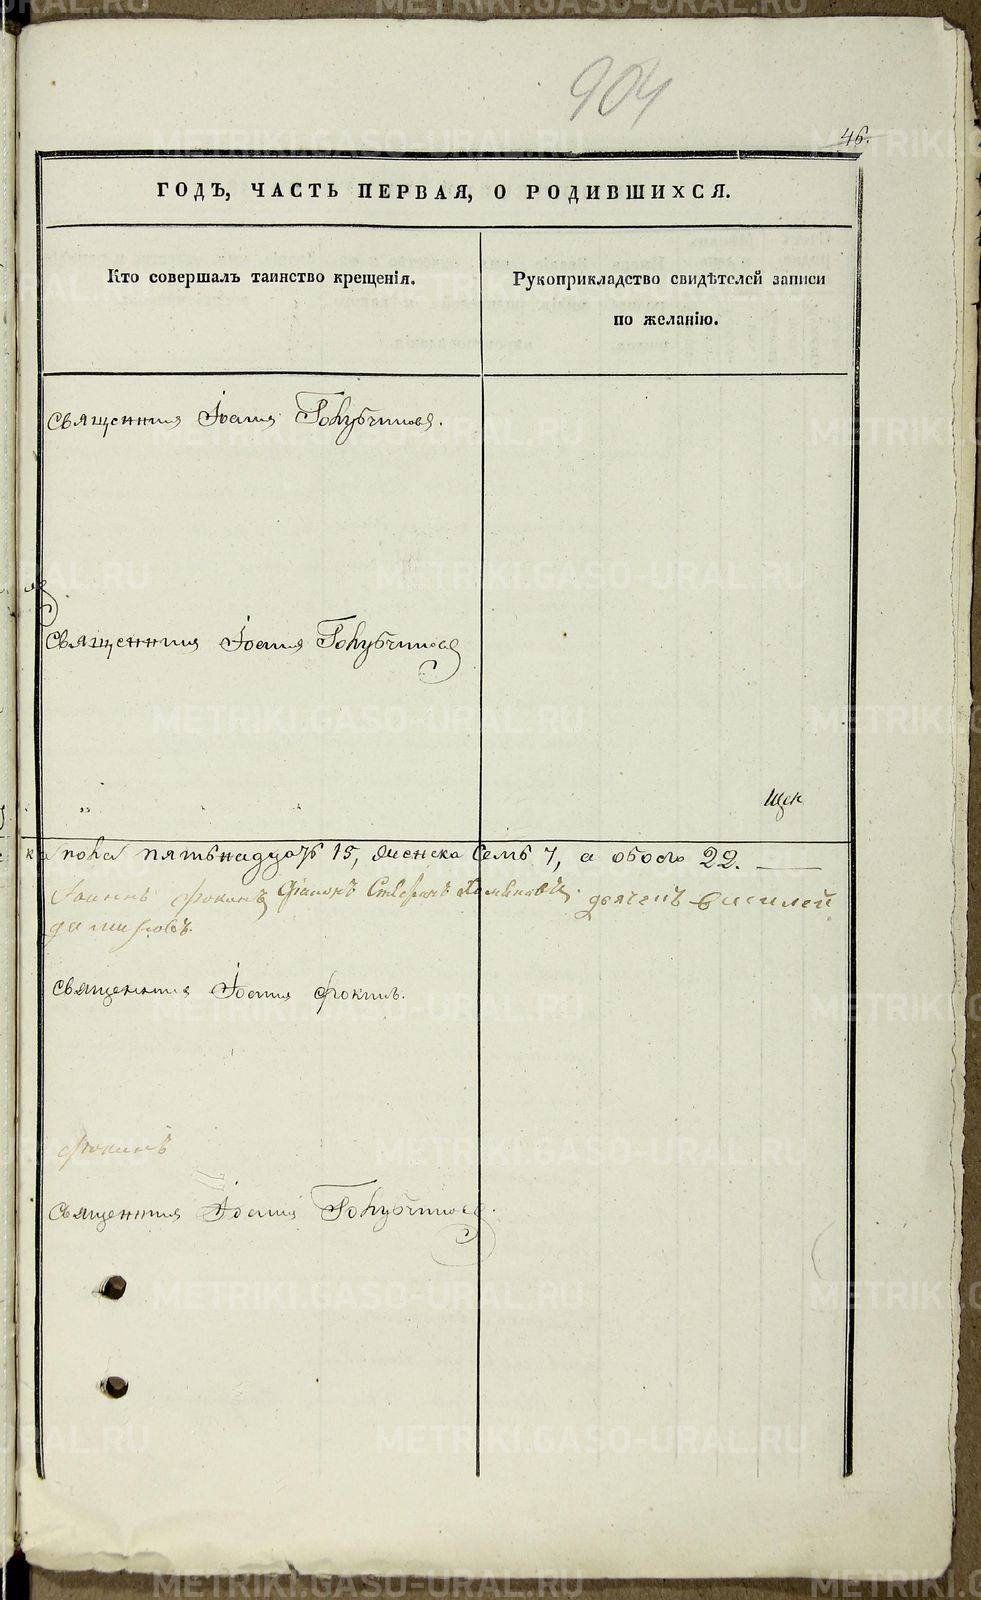 904
46.
ГОДЪ, ЧАСТЬ ПЕРВАЯ, О РОДИВШИХСЯ.
Кто совершалъ таинство крещенія.
Рукоприкладство свидѣтелей записи
по желанію.
Священник Іоанн Голубчиков.
Священник Іоанн Голубчиков
пола пятьнадцать 15, женска Семь 7, а обоего 22.
Іоаннъ Фокинъ Діаконъ Стефанъ дьячекъ Василей
Священник Іоанн Фокин.
Фокинъ
Священник Іоанн Голубчиков.
METRIKI.GASO-URAL.RU